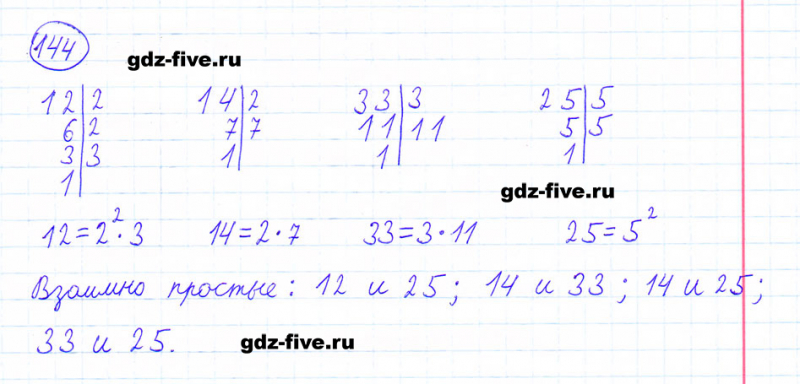 144
gdz-five.ru
12|2 14|2 33|3 25|5
6|2 7|7 11|11 5|5
3|3 1| 1| 1|
1|
gdz-five.ru
12=2²·3 14=2·7 33=3·11 25=5²
Взаимно простые: 12 и 25; 14 и 33; 14 и 25;
33 и 25.
gdz-five.ru